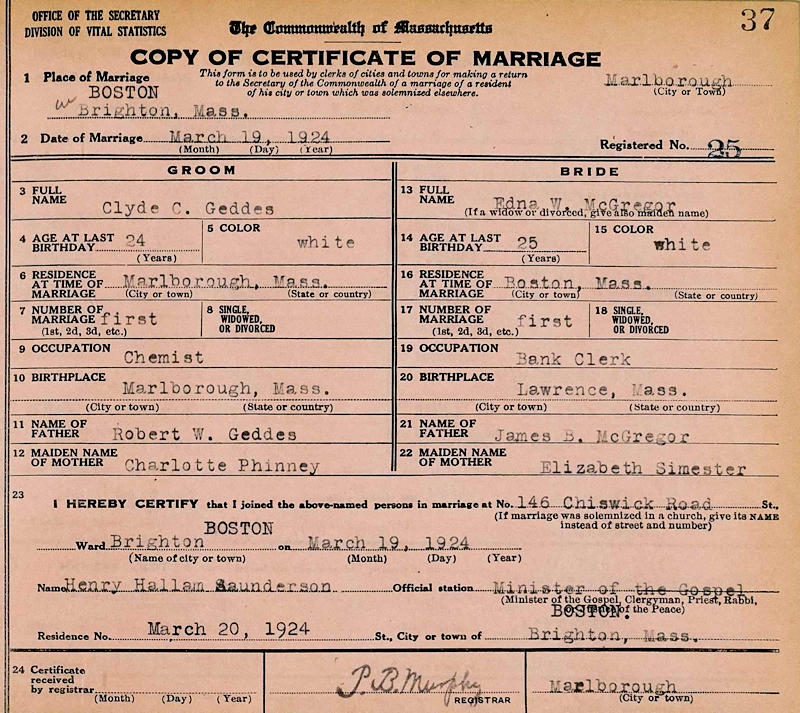 OFFICE OF THE SECRETARY
DIVISION OF VITAL STATISTICS
The Commonwealth of Massachusetts
37
COPY OF CERTIFICATE OF MARRIAGE
This form is to be used by clerks of cities and towns for making a return
to the Secretary of the Commonwealth of a marriage of a resident
of his city or town which was solemnized elsewhere.
1 Place of Marriage
BOSTON
Brighton, Mass.
Marlborough
(City or Town)
2 Date of Marriage March 19, 1924
(Month) (Day) (Year)
Registered No. 25
GROOM
3 FULL NAME Clyde C. Geddes
4 AGE AT LAST BIRTHDAY 24
(Years)
5 COLOR white
6 RESIDENCE AT TIME OF MARRIAGE Marlborough, Mass.
(City or town) (State or country)
7 NUMBER OF MARRIAGE first
(1st, 2d, 3d, etc.)
8 SINGLE, WIDOWED, OR DIVORCED
9 OCCUPATION Chemist
10 BIRTHPLACE Marlborough, Mass.
(City or town) (State or country)
11 NAME OF FATHER Robert W. Geddes
12 MAIDEN NAME OF MOTHER Charlotte Phinney
BRIDE
13 FULL NAME Edna W. McGregor
(If a widow or divorced, give also maiden name)
14 AGE AT LAST BIRTHDAY 25
(Years)
15 COLOR white
16 RESIDENCE AT TIME OF MARRIAGE Boston, Mass.
(City or town) (State or country)
17 NUMBER OF MARRIAGE first
(1st, 2d, 3d, etc.)
18 SINGLE, WIDOWED, OR DIVORCED
19 OCCUPATION Bank Clerk
20 BIRTHPLACE Lawrence, Mass.
(City or town) (State or country)
21 NAME OF FATHER James B. McGregor
22 MAIDEN NAME OF MOTHER Elizabeth Simester
23
I HEREBY CERTIFY that I joined the above-named persons in marriage at No. 146 Chiswick Road St.,
(If marriage was solemnized in a church, give its NAME
instead of street and number)
BOSTON
Ward Brighton on March 19, 1924
(Name of city or town) (Month) (Day) (Year)
Name Henry Hallam Saunderson Official station Minister of the Gospel
(Minister of the Gospel, Clergyman, Priest, Rabbi,
BOSTON. of the Peace)
Residence No. March 20, 1924 St., City or town of Brighton, Mass.
24 Certificate received by registrar
(Month) (Day) (Year)
P. B. Murphy
REGISTRAR
Marlborough
(City or town)